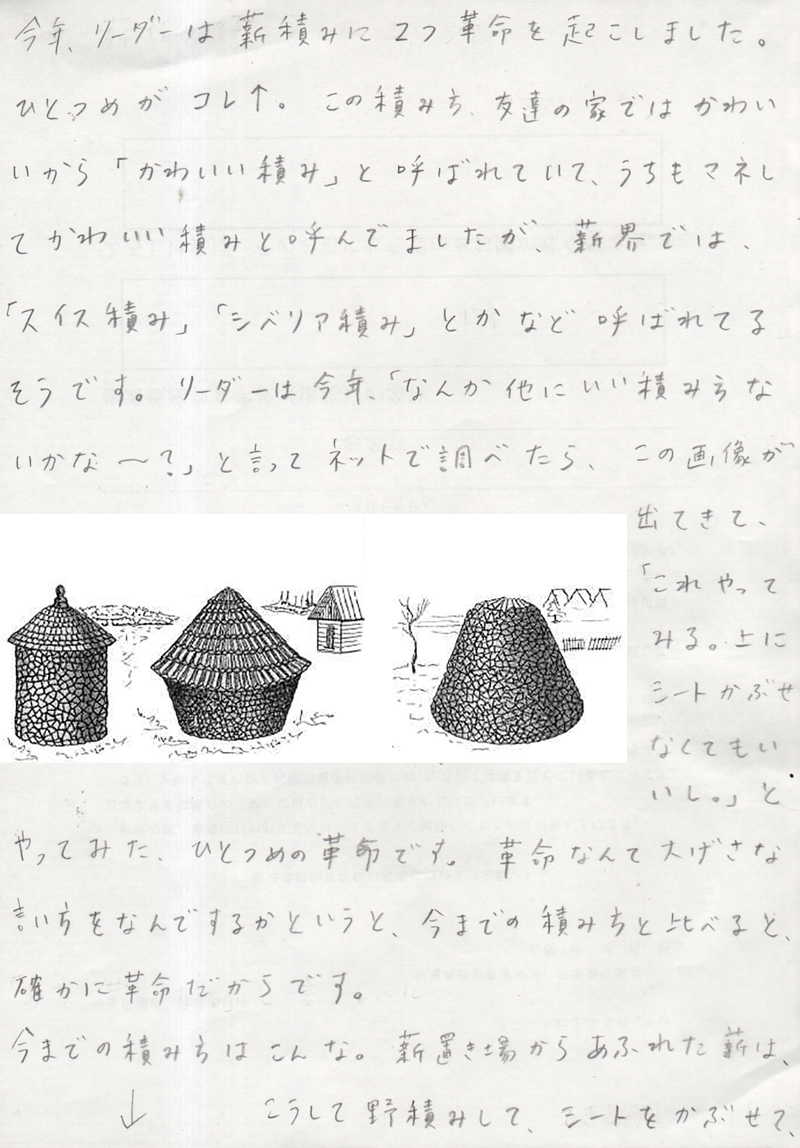 今年、リーダーは薪積みに2つ革命を起こしました。
ひとつめがコレ↑。この積み方、友達の家ではかわい
いから「かわいい積み」と呼ばれていて、うちもマネし
てかわいい積みと呼んでましたが、薪界では、
「スイス積み」「シベリア積み」とかなど呼ばれてる
そうです。リーダーは今年、「なんか他にいい積み方な
いかな〜?」と言ってネットで調べたら、この画像が
出てきて、
「これやって
みる。上に
シートかぶせ
なくてもい
いし。」と
やってみた、ひとつめの革命です。革命なんて大げさな
言い方をなんでするかというと、今までの積み方と比べると、
確かに革命だからです。
今までの積み方はこんな。薪置き場からあふれた薪は、
↓ こうして野積みして、シートをかぶせて、